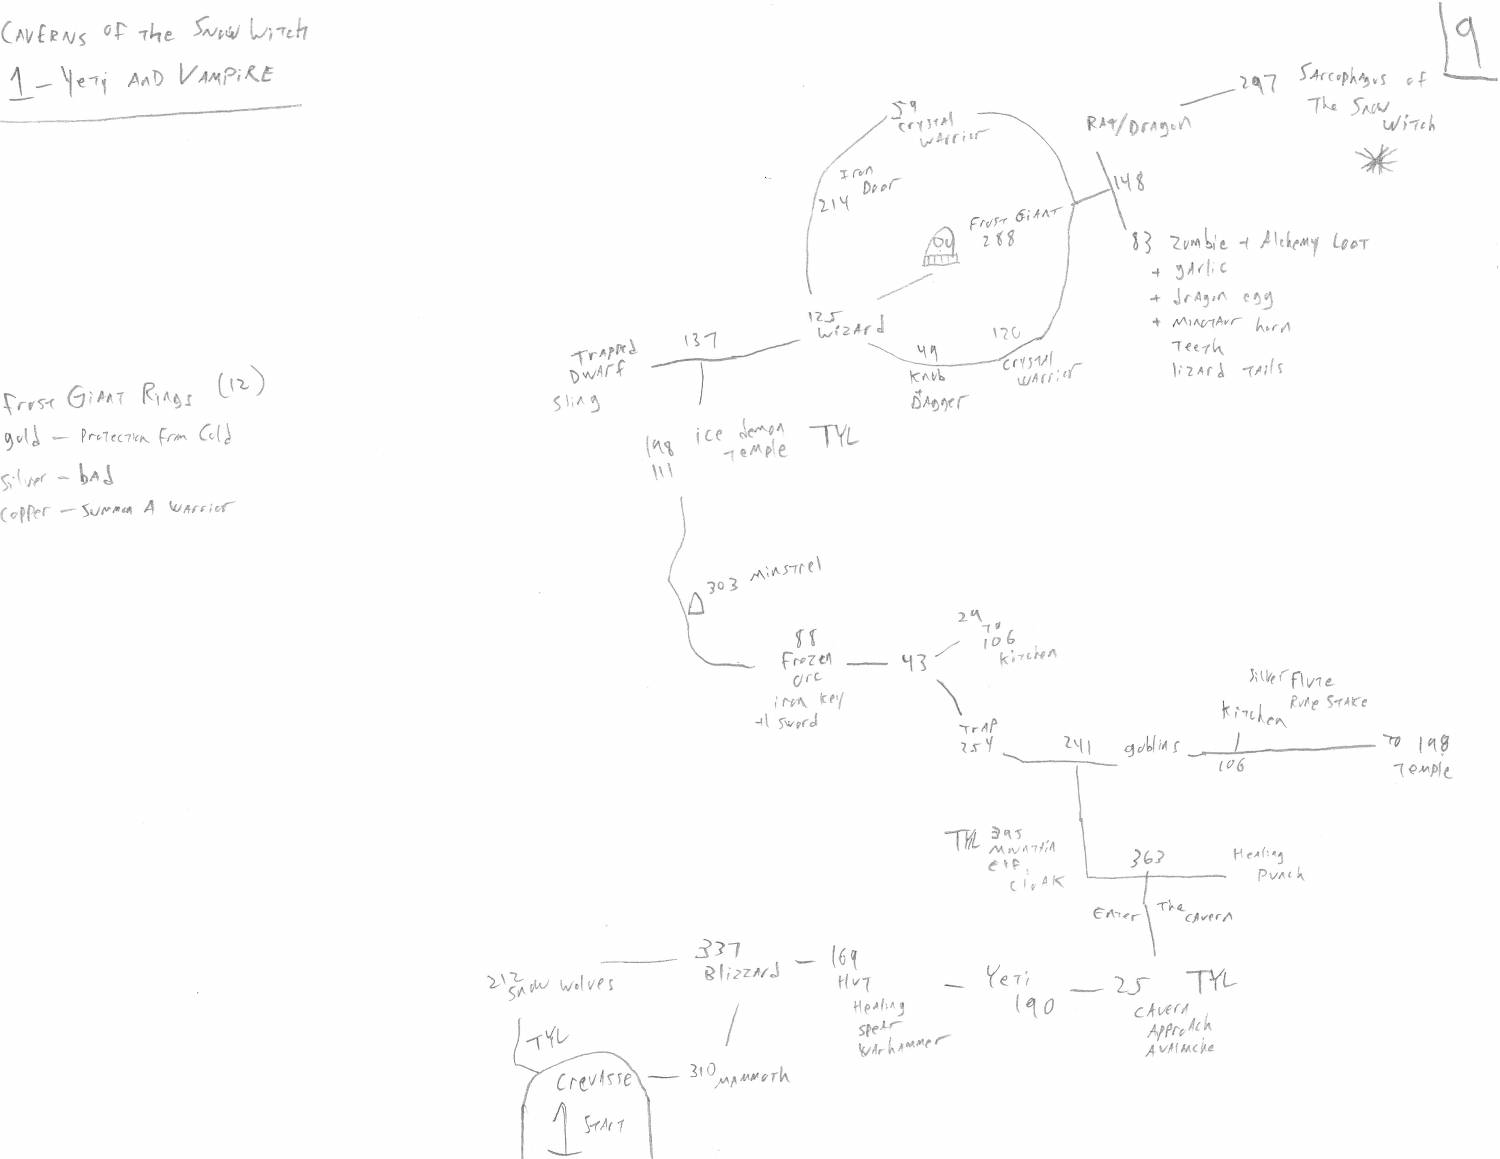 CAVERNS OF THE SNOW WITCH
1 – Yeti AND VAMPIRE
9
297 SArcophagus of
The Snow
Witch
RAt/DrAgon
148
59
Crystal
WArrior
Iron
Door
214
Frost GiAnt
288
83 Zombie + Alchemy Loot
+ gArlic
+ drAgon egg
+ MinotAur horn
Teeth
lizArd TAils
125
WizArd
120
Crystal
WArrior
49
Knob
+
DAgger
137
TrApped
DwArf
Sling
Frost GiAnt Rings (12)
gold – Protection From Cold
Silver – bAd
Copper – Summon A WArrior
198 ice demon
Temple TYL
111
303 minstrel
88
Frozen
orc
iron key
+1 sword
43
29
To
106
Kitchen
TrAP
254
241
goblins
Silver Flute
Rune StAke
Kitchen
106
To 198
Temple
TYL 395
MountAin
elf,
CloAK
363
HeAling
Punch
Enter The
CAvern
212
Snow wolves
337
BlizzArd
169
HUT
HeAling
SpeAr
WArhammer
Yeti
190
25 TYL
CAvern
ApproAch
AvAlAnche
TYL
CrevAsse
310 mAmmoth
StArt